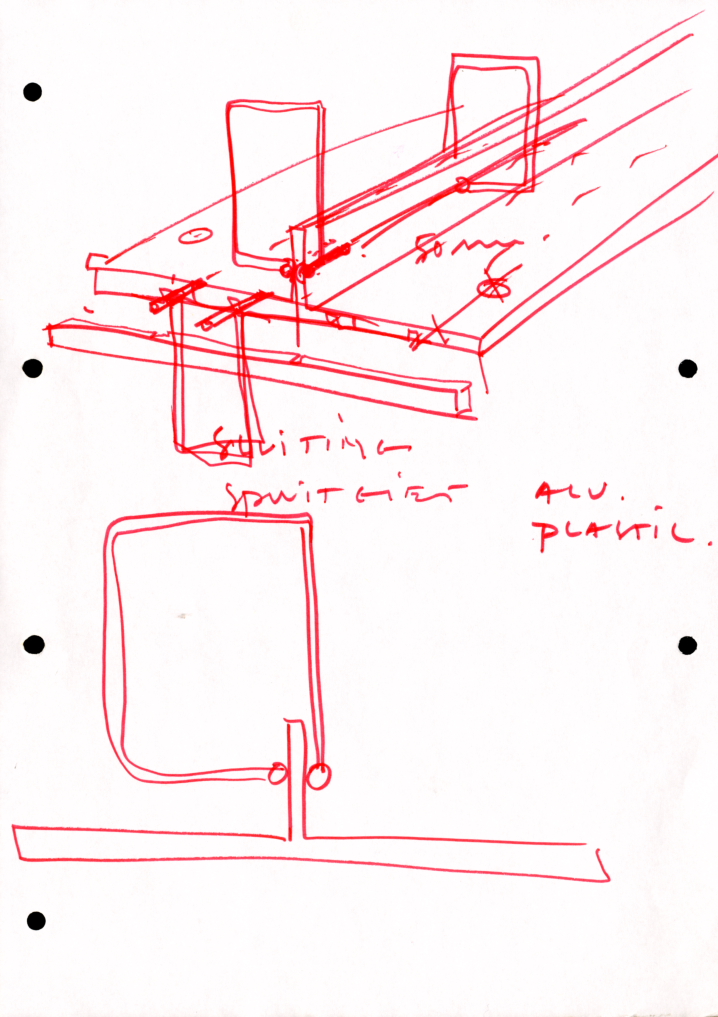 50 mm.
SLUITING
SPUITGIET
ALU.
PLASTIC.